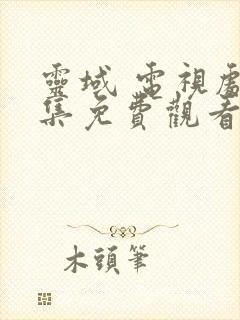 靈域 電視劇
集免費觀看
木頭筆